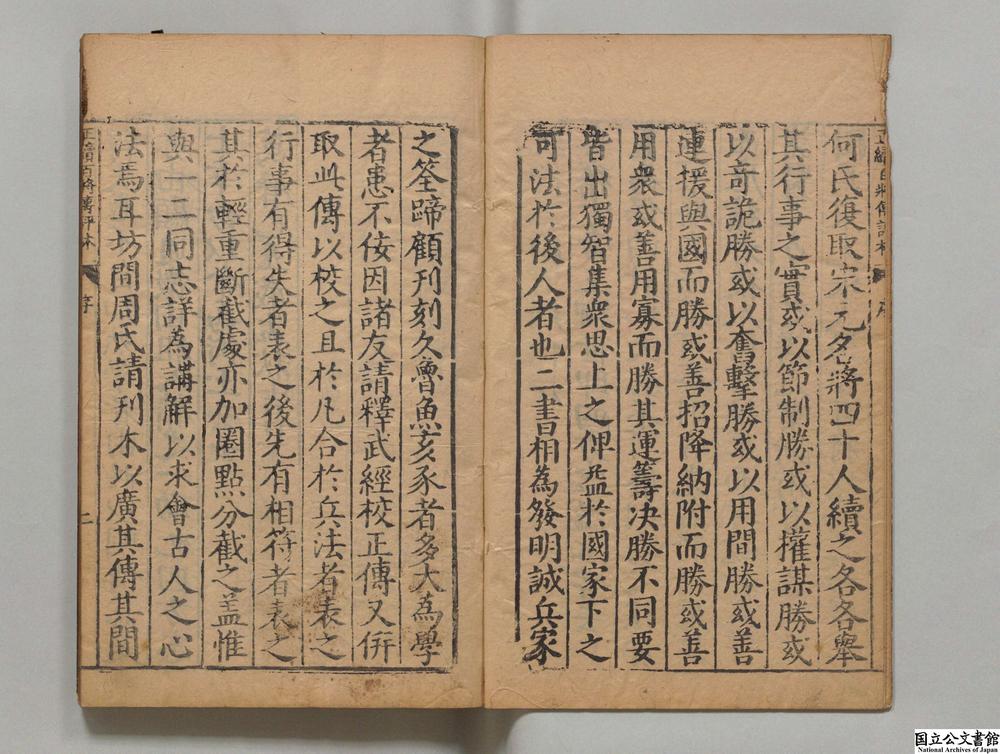 何氏復取宋元名將四十人續之各各舉
其行事之實或以節制勝或以權謀勝或
以奇詭勝或以奮擊勝或以用間勝或善
連援與國而勝或善招降納附而勝或善
用衆或善用寡而勝其運籌决勝不同要
皆出獨智集衆思上之俾益於國家下之
可法於後人者也二書相為發明誠兵家
之筌蹄顧刊刻久魯魚亥豕者多大為學
者患不佞因諸友請釋武經校正傳又併
取此傳以校之且於凡合於兵法者表之
行事有得失者表之後先有相符者表之
其於輕重斷截處亦加圈點分截之盖惟
與一二同志詳為講解以求會古人之心
法焉耳坊間周氏請刊木以廣其傳其間
正續百將傳評林
序
二
国立公文書館
National Archives of Japan